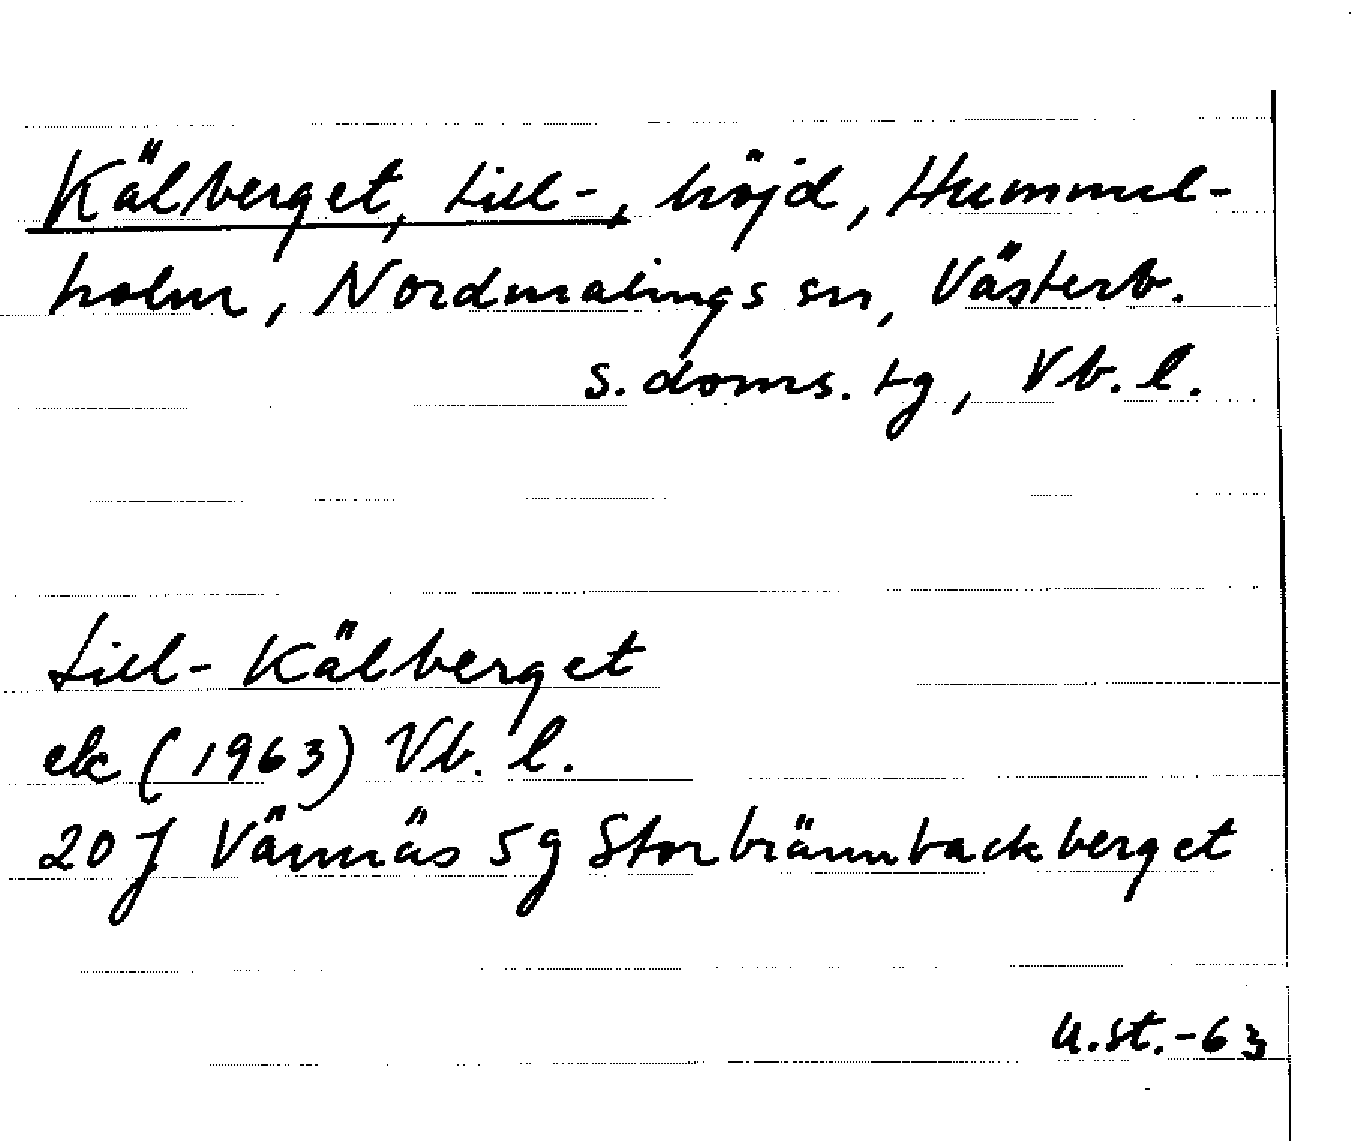 Kälberget, Lill-, höjd, Hummel-
holm, Nordmalings sn, Västerb.
s. doms. tg, Vb. l.
Lill-Kälberget
ek (1963) Vb. l.
20 J Vännäs 5g Storbrännbackberget
U.st.-63